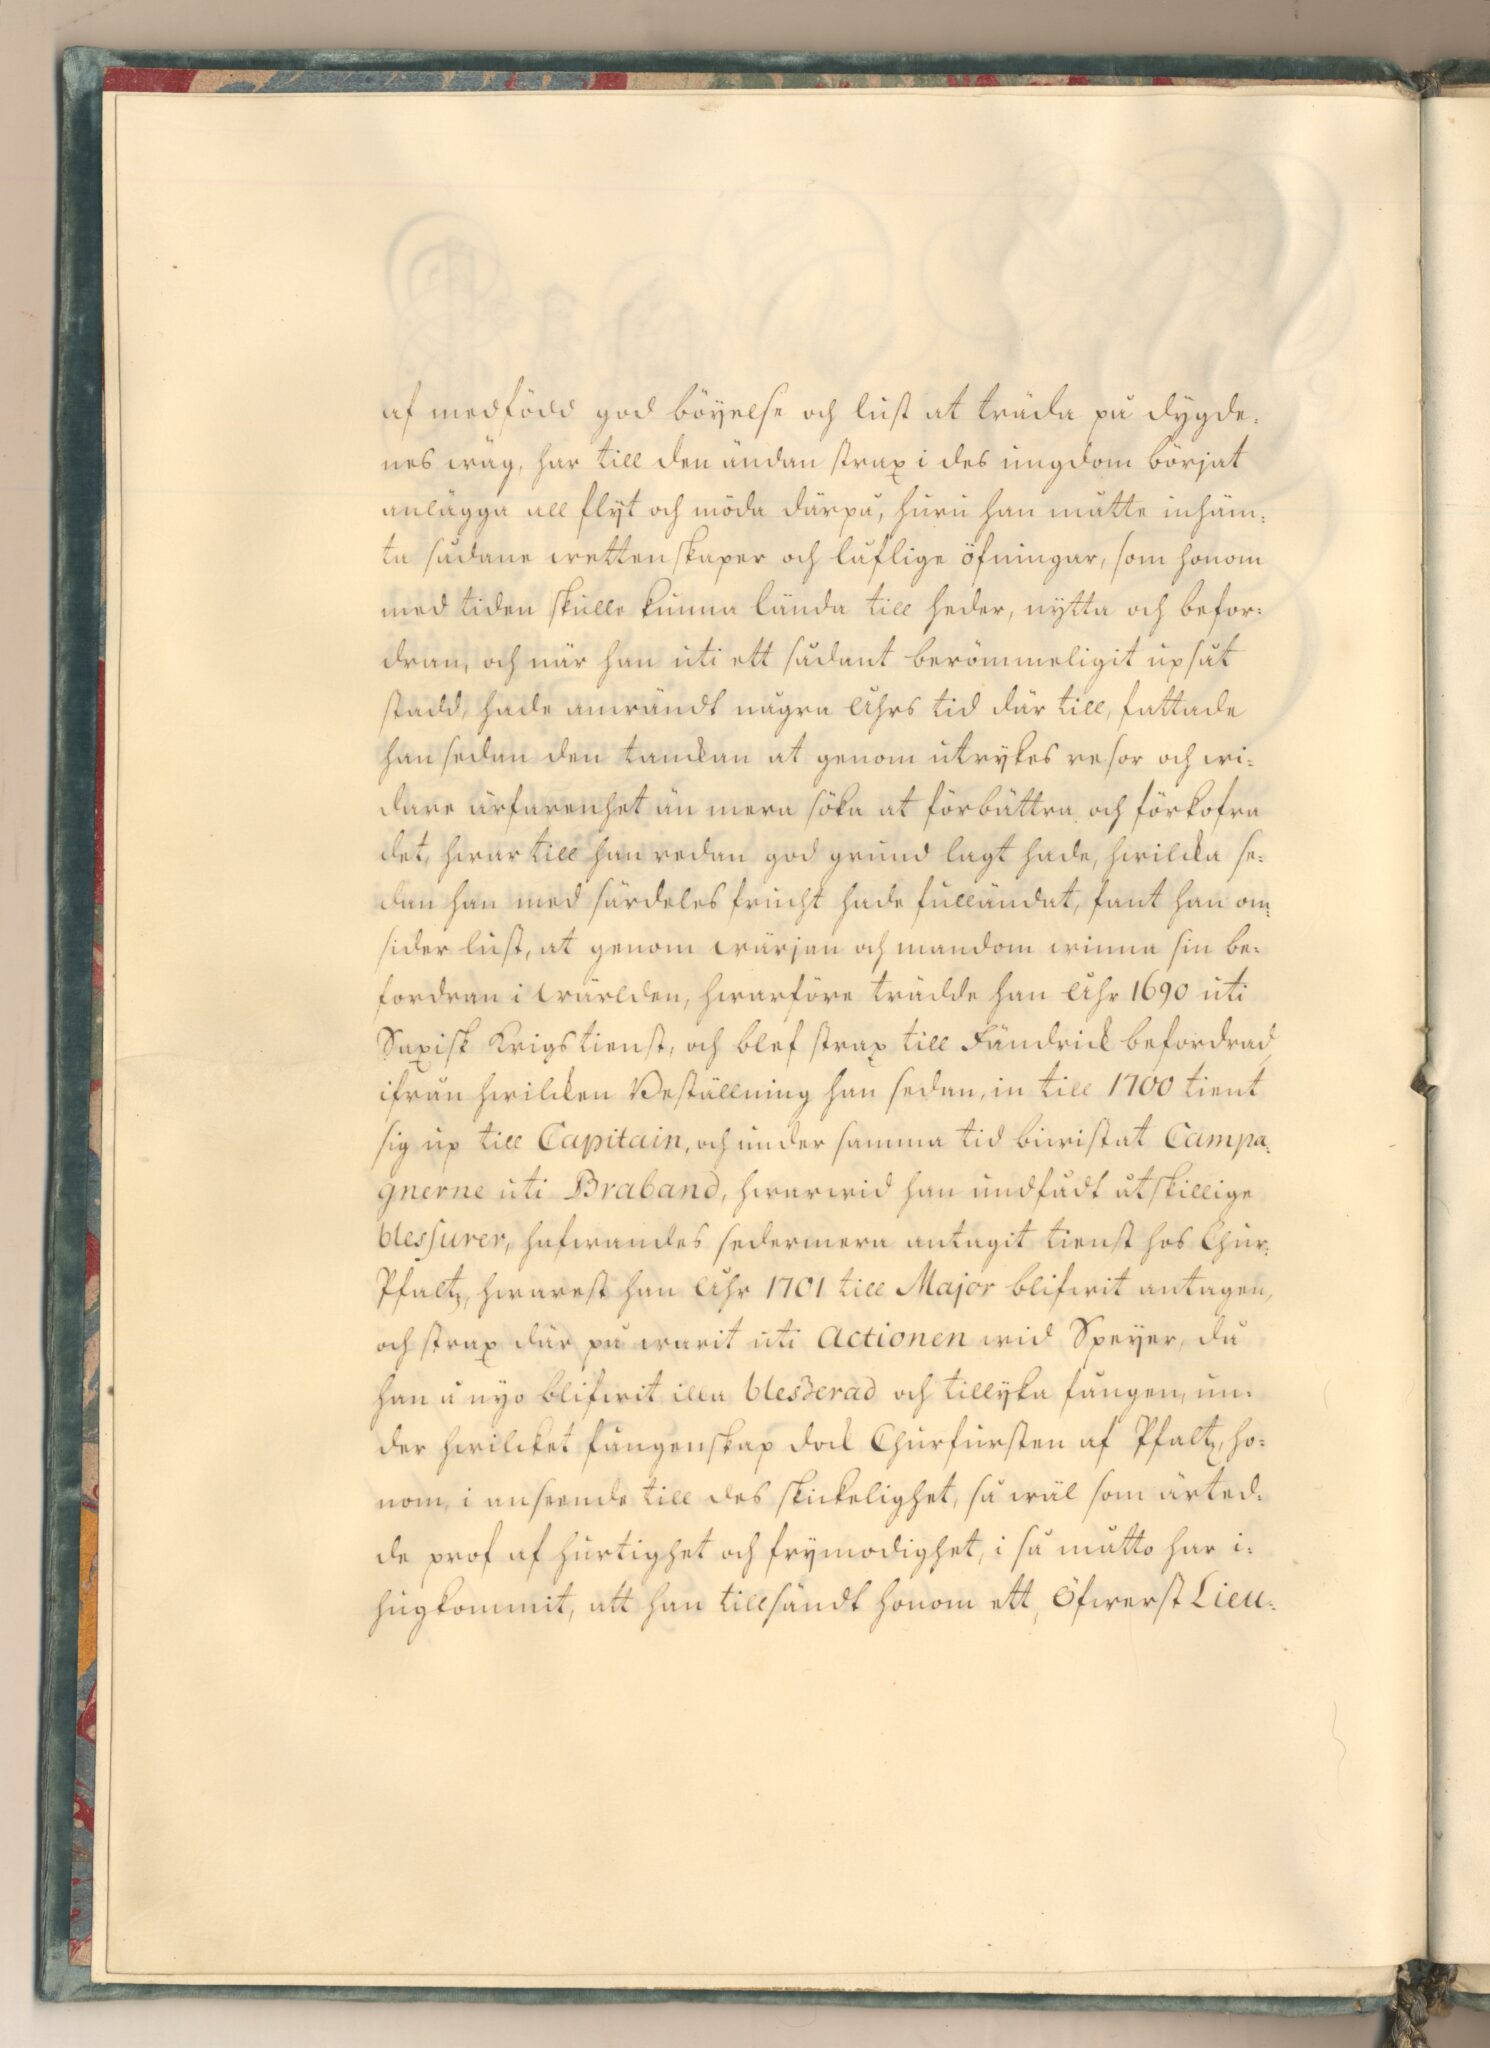 af medfödd god böyelse och lust at träda på dygde-
nes wäg, har till den ändan strax i des ungdom börjat
anlägga all flyt och möda därpå, huru han måtte inhäm-
ta sådane wettenskaper och låflige öfningar, som honom
med tiden skulle kunna lända till heder, nytta och befor-
dran, och när han uti ett sådant berömmeligit upsåt
stadd, hade anwändt några Åhrs tid där till, fattade
han sedan den tanckan at genom utrykes resor och wi-
dare ärfarenhet än mera söka at förbättra och förkofra
det, hwar till han redan god grund lagt hade, hwilcka se-
dan han med särdeles frucht hade fulländat, fant han om-
sider lust, at genom wärjan och mandom winna sin be-
fordran i wärlden, hwarföre trädde han Åhr 1690 uti
Saxisk Krigstienst, och blef strax till Fändrick befordrad,
ifrån hwilcken Beställning han sedan, in till 1700 tient
sig up till Capitain, och under samma tid biwistat Campa-
gnerne uti Braband, hwarwid han undfådt åtskillige
blessurer, hafwandes sedermera antagit tienst hos Chur-
Pfaltz, hwarest han Åhr 1701 till Major blifwit antagen,
och strax där på warit uti Actionen wid Speyer, då
han å nyo blifwit illa blesserad och tillyka fången, un-
der hwilcket fångenskap dock Churfursten af Pfaltz, ho-
nom, i anseende till des skickelighet, så wäl som ärted-
de prof af hurtighet och frymodighet, i så måtto har i-
hugkommit, att han tillsändt honom ett Öfwerst Lieu-